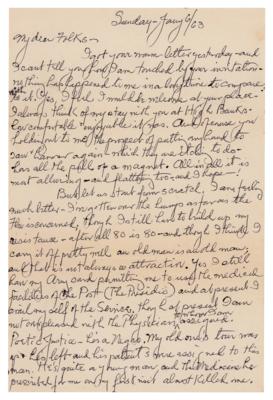 Sunday - Jany 6/63
My dear Folks -
I got your warm letter yesterday - and
I can't tell you how I am touched by your invitation -
nothing has happened to me in a long time to compare
to it. Yes, I feel I would be welcome at your place -
I always think of my stay with you at High Banks -
How comfortable & enjoyable it was. And of course you
holding out to me the project of putting my hand to
saw & hammer again which they use to do -
has all the pull of a magnet. All in all it is
most alluring - and flattering too - and I hope - !
But let us start from scratch, I am feeling
much better - I may throw over the hump as far as the
flu is concerned, though I still have to build up my
resistance - after all 80 is 80 - and though I think I
carry it off pretty well an old man is an old man,
and that is not always an attraction. Yes I still
have my Army card permitting me to use the medical
facilities of the Post (The Presidio) and at present I
avail myself of the Service, though at present I am
not so pleased with the Physician to whom I am assigned.
Poetic justice - he's a Negro. My old one's tour was
up - he left and his patients were assigned to this
man. He's quite a young man and the medicine he
prescribed for me on my first visit almost killed me.